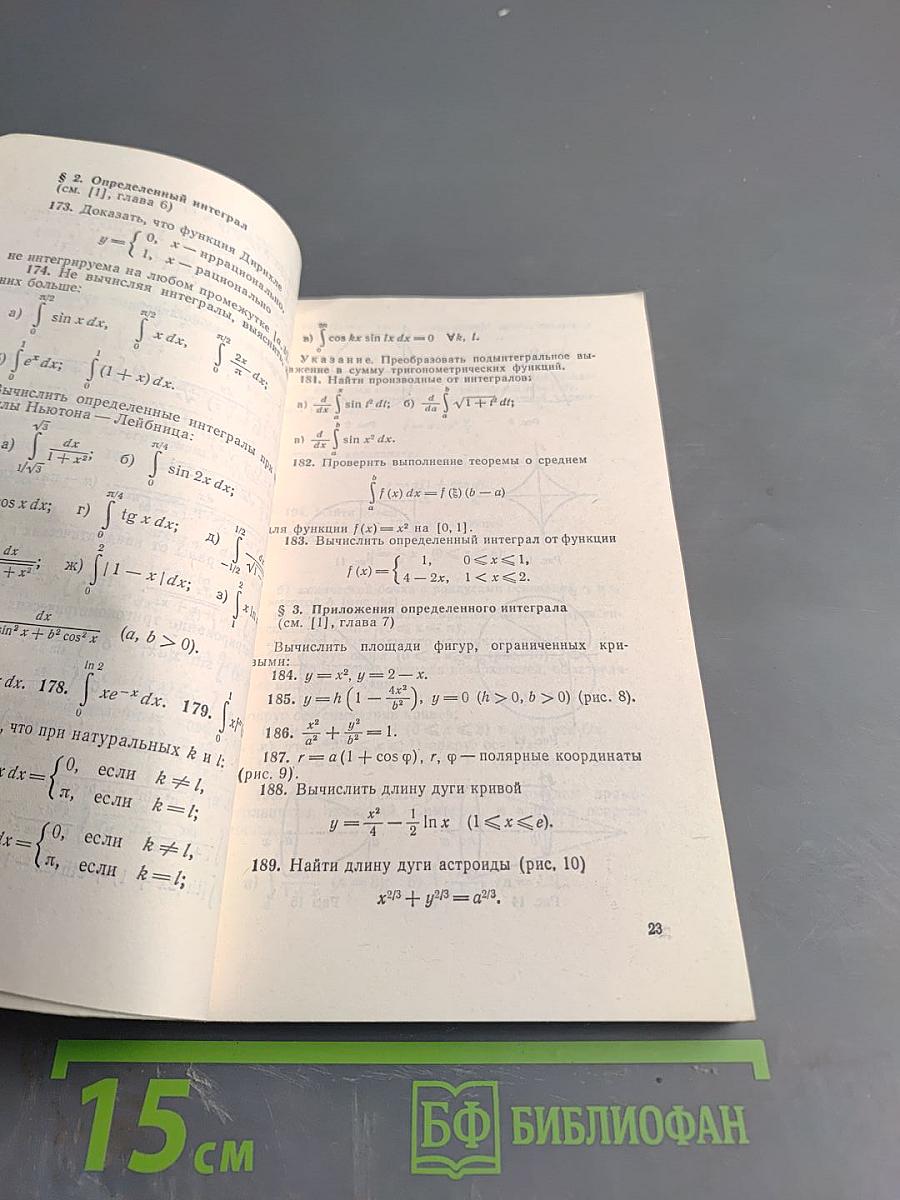 § 2. Определенный интеграл
(см. [1], глава 6)
173. Доказать, что функция Дирихле
y = { 0, x — иррационально,
1, x — рационально
не интегрируема на любом промежутке
174. Не вычисляя интегралы, выяснить,
них больше:
а) ∫₀^{π/2} sin x dx, ∫₀^{π/2} x dx, ∫₀^{π/2} 2x/π dx;
∫₀^1 e^x dx; ∫₀^1 (1 + x) dx.
Вычислить определенные интегралы при
Ньютона — Лейбница:
а) ∫_{1/√3}^{√3} dx/(1 + x²); б) ∫₀^{π/4} sin 2x dx;
cos x dx; г) ∫₀^{π/4} tg x dx; д) ∫_{−1/2}^{1/2}
ж) ∫₀^2 |1 − x| dx; з) ∫₁^2
dx/(sin² x + b² cos² x) (a, b > 0).
dx. 178. ∫₀^{ln 2} xe^{−x} dx. 179. ∫₀^1
что при натуральных k и l:
x dx = { 0, если k ≠ l,
π, если k = l;
dx = { 0, если k ≠ l,
π, если k = l;
в) ∫₀^π cos kx sin lx dx = 0 ∀k, l.
Указание. Преобразовать подынтегральное вы-
ражение в сумму тригонометрических функций.
181. Найти производные от интегралов:
а) d/dx ∫_a^x sin t² dt; б) d/da ∫_a^b √(1 + t²) dt;
в) d/dx ∫_a^b sin x² dx.
182. Проверить выполнение теоремы о среднем
∫_a^b f (x) dx = f (ξ) (b — a)
для функции f (x) = x² на [0, 1].
183. Вычислить определенный интеграл от функции
f (x) = { 1, 0 ⩽ x ⩽ 1,
4 — 2x, 1 < x ⩽ 2.
§ 3. Приложения определенного интеграла
(см. [1], глава 7)
Вычислить площади фигур, ограниченных кри-
выми:
184. y = x², y = 2 — x.
185. y = h (1 — 4x²/b²), y = 0 (h > 0, b > 0) (рис. 8).
186. x²/a² + y²/b² = 1.
187. r = a (1 + cos φ), r, φ — полярные координаты
(рис. 9).
188. Вычислить длину дуги кривой
y = x²/4 — 1/2 ln x (1 ⩽ x ⩽ e).
189. Найти длину дуги астроиды (рис, 10)
x^{2/3} + y^{2/3} = a^{2/3}.
23
15 см
БФ БИБЛИОФАН